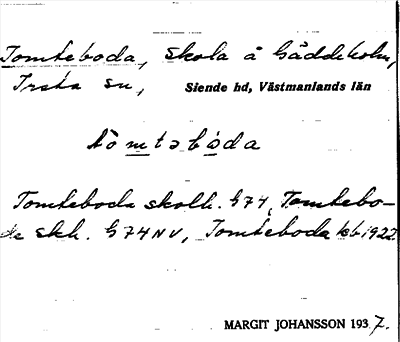 Tomteboda, skola å Gäddeholm,
Irsta sn, Siende hd, Västmanlands län
tòmtəbóda
Tomteboda skolh. G74, Tomtebo-
da skh. G74NV, Tomteboda kb 1922.
MARGIT JOHANSSON 1937.